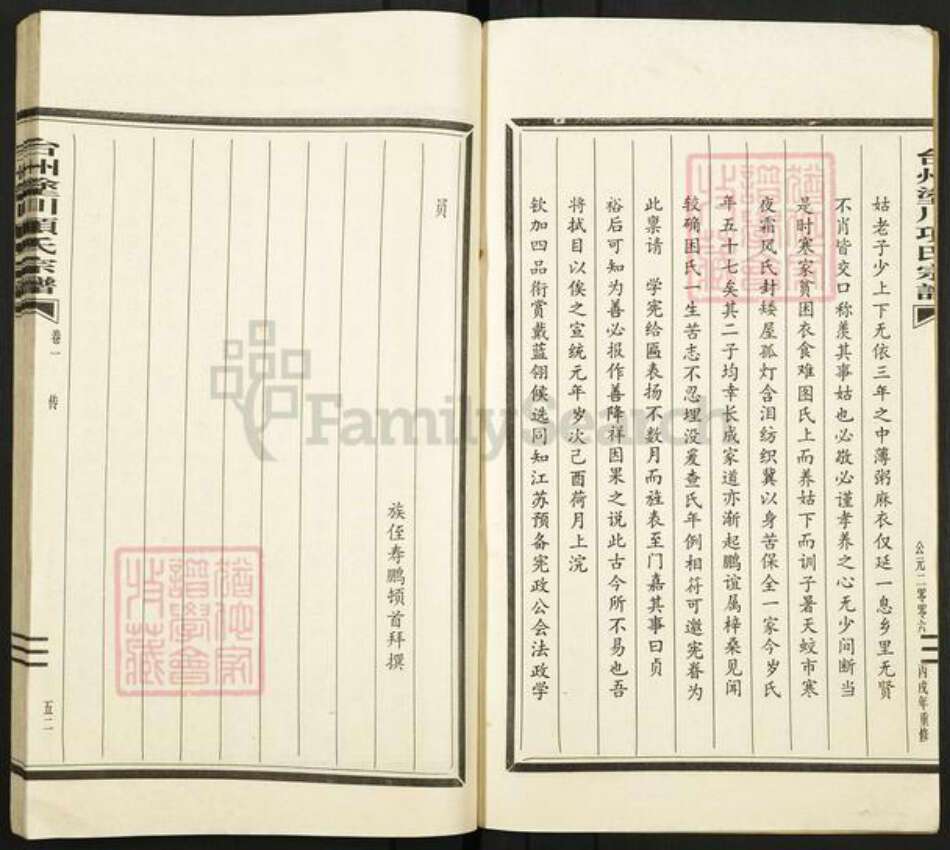 姑老子少上下无依三年之中薄粥麻衣仅延一息乡里无贤
不肖皆交口称羡其事姑也必敬必谨孝养之心无少间断当
是时寒家贫困衣食难图氏上而养姑下而训子暑天蛟市寒
夜霜风氏封矮屋孤灯含泪纺织冀以身苦保全一家今岁氏
年五十七矣其二子均幸长成家道亦渐起鹏谊属梓桑见闻
较确困氏一生苦志不忍埋没爰查氏年例相符可邀宪眷为
此禀请 学宪给匾表扬不数月而旌表至门嘉其事曰贞
裕后可知为善必报作善降祥因果之说此古今所不易也吾
将拭目以俟之宣统元年岁次己酉荷月上浣
钦加四品衔赏戴蓝翎候选同知江苏预备宪政公会法政学
公元二零零六
丙戌年重修
台州涂川项氏宗谱
员
族侄寿鹏顿首拜撰
台州涂川项氏宗谱
卷一
传
五二
FamilySearch